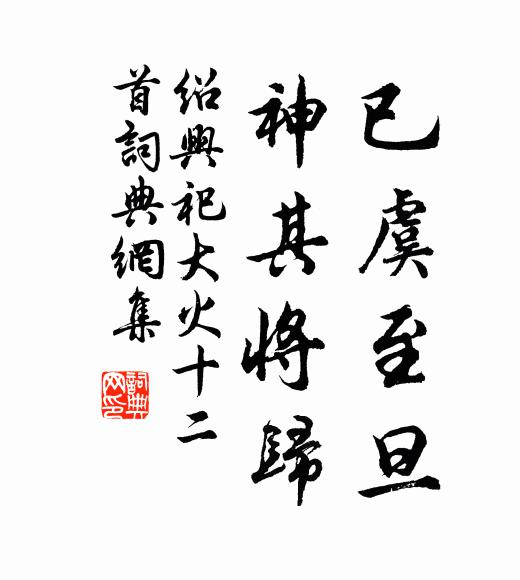 已虞至旦
神其將歸
紹興祀大火十二
首詞典網集
詞典
网印